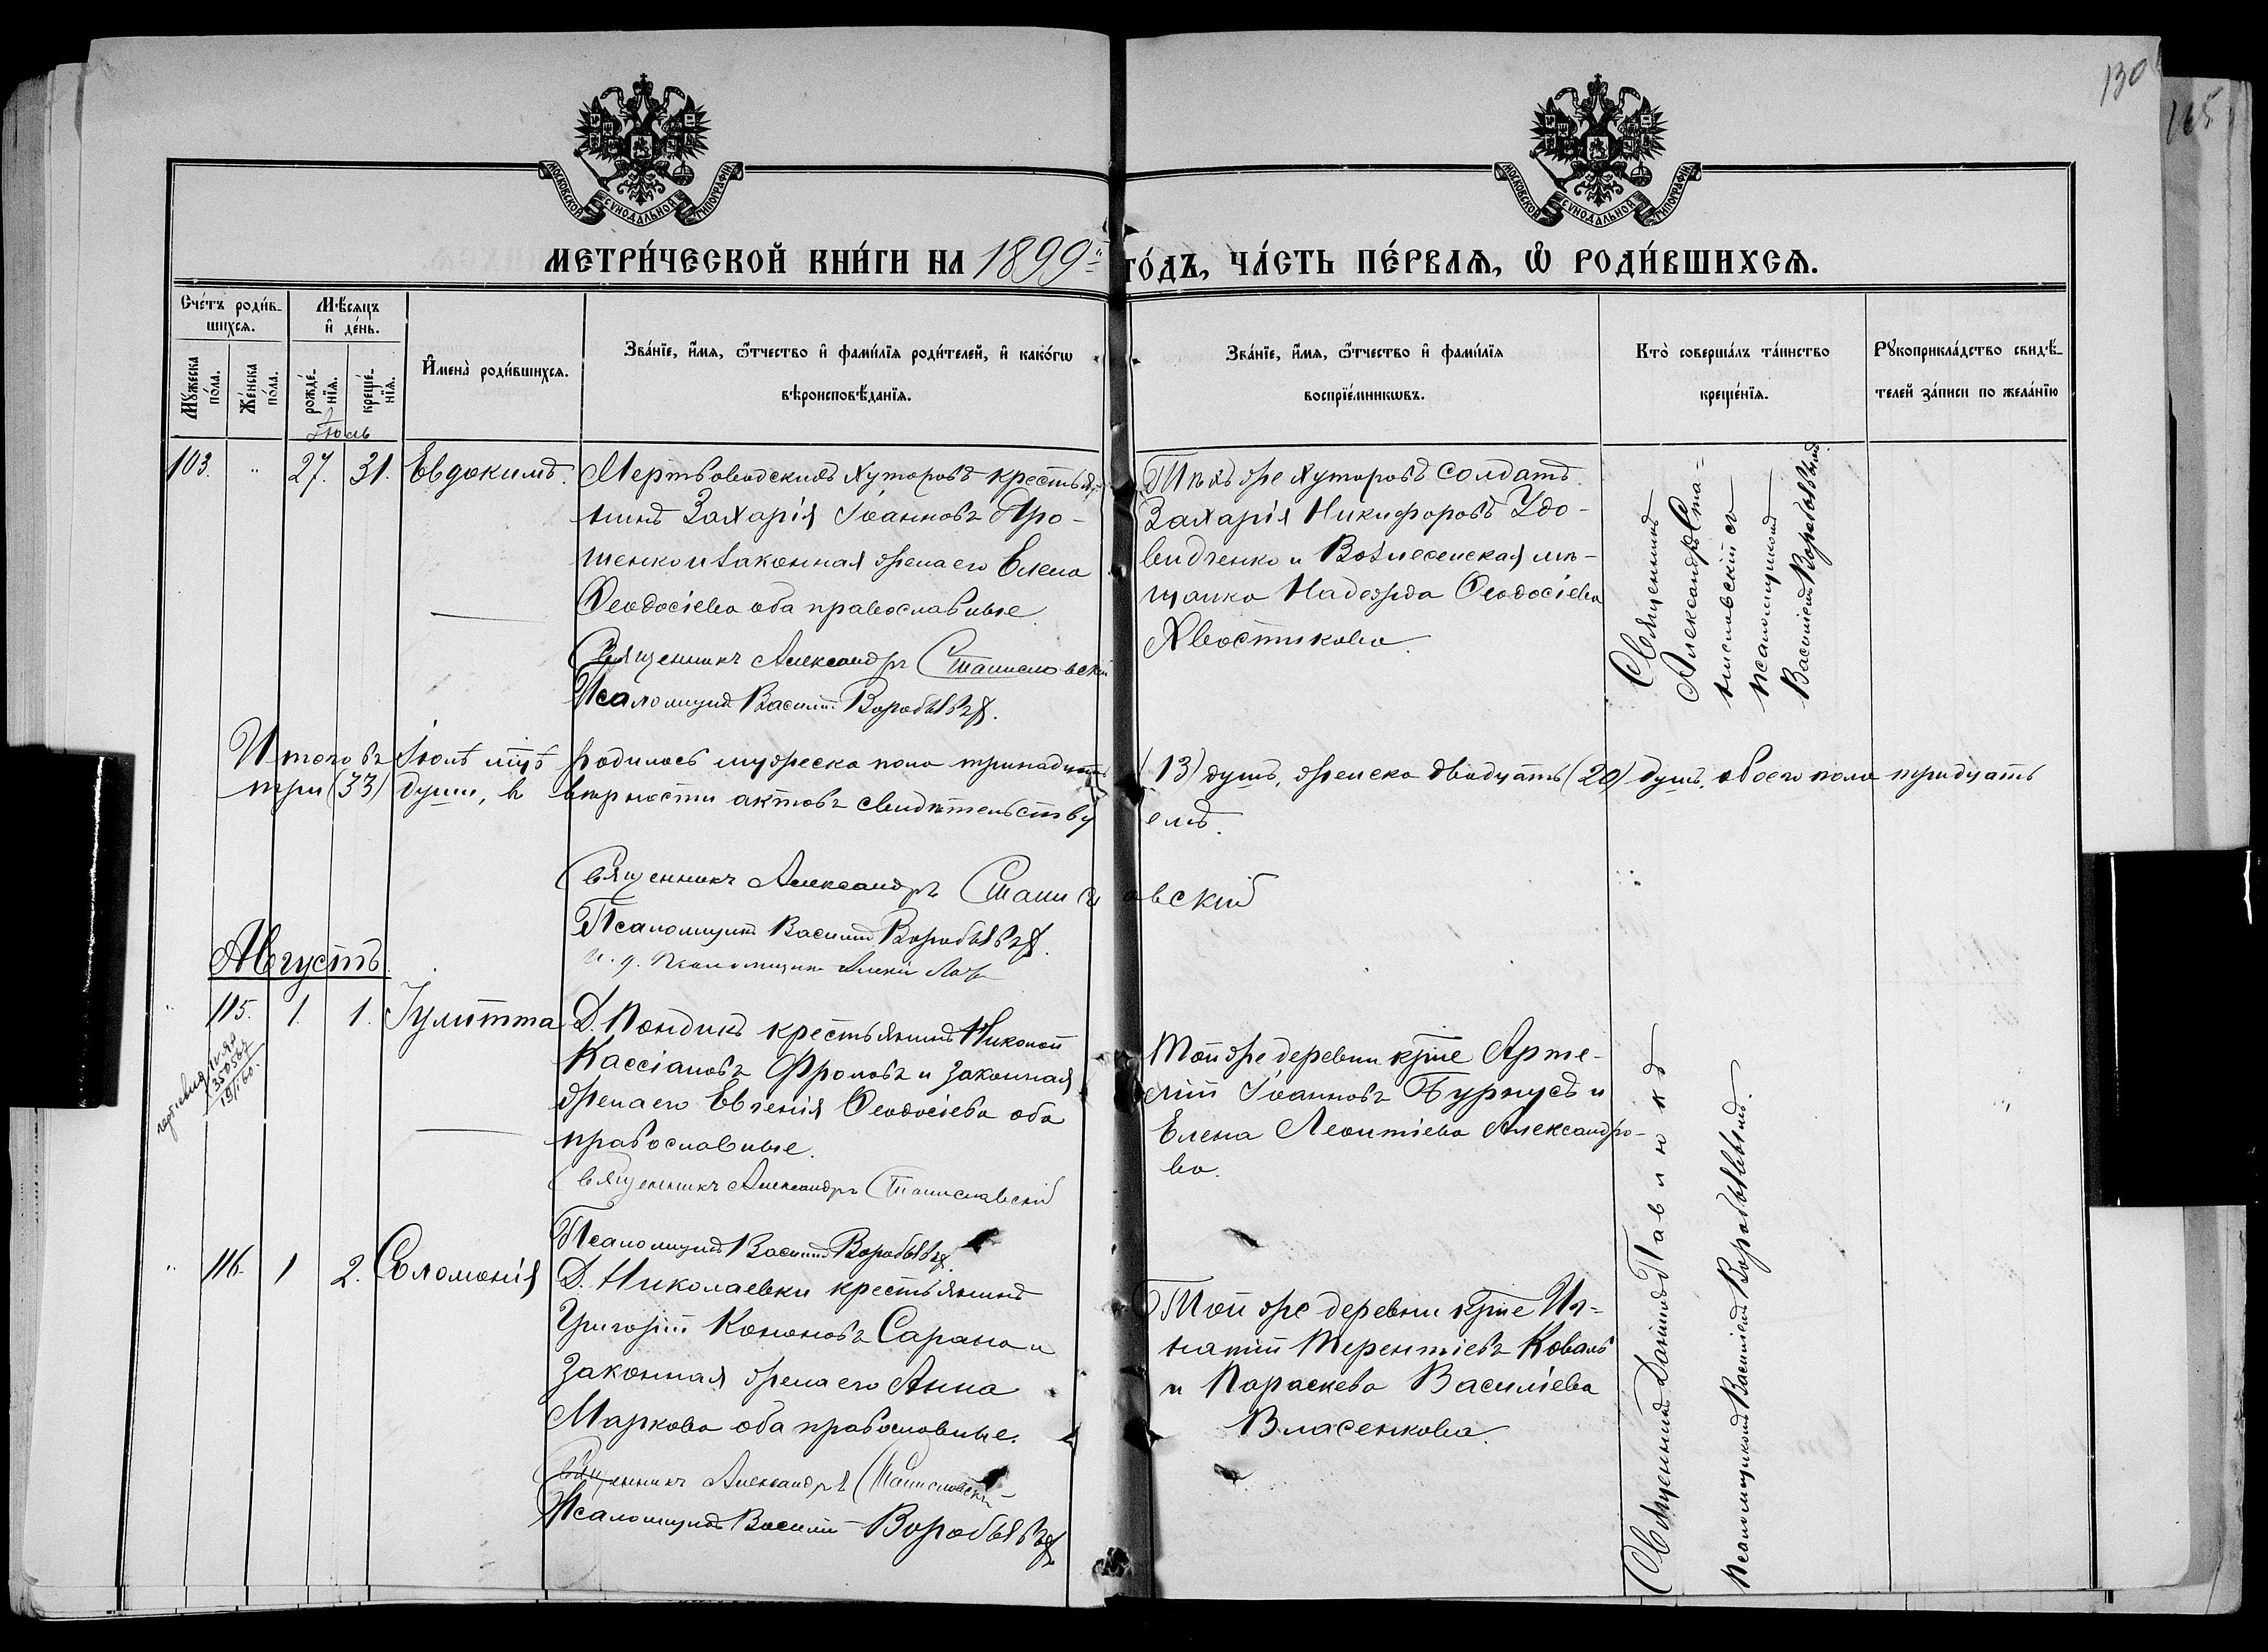 130
165
МОСКОВСКОЙ СѴНОДАЛЬНОЙ ТИПОГРАФІИ
МОСКОВСКОЙ СѴНОДАЛЬНОЙ ТИПОГРАФІИ
МЕТРИ́ЧЕСКОЙ КНИ́ГИ НА 1899й ГО́ДЪ, ЧА́СТЬ ПЕ́РВАѦ, Ѿ РОДИ́ВШИХСѦ.
Сче́тъ роди́в-
шихсѧ.
Мꙋ́жеска по́ла.
Же́нска по́ла.
Мѣ́сѧцъ и҆ де́нь.
рожде́-
нїѧ.
креще́-
нїѧ.
И҆мена̀ роди́вшихсѧ.
Зва́нїе, и҆́мѧ, ѻ҆́тчество и҆ фами́лїѧ роди́телей, и҆ како́гѡ
вѣроисповѣ́данїѧ.
Зва́нїе, и҆́мѧ, ѻ҆́тчество и҆ фами́лїѧ
воспрїе́мникѡвъ.
Кто̀ соверша́лъ та́инство
креще́нїѧ.
Рꙋкоприкла́дство свидѣ́-
телей за́писи по жела́нїю
Іюль
103. " 27. 31. Евдокимъ.
Мертвоводскихъ хуторовъ крестья-
нинъ Захарія Іоанновъ Яро-
шенко и законная жена его Елена
Ѳеодосіева оба православные.
Священникъ Александръ Станиславскій
Псаломщикъ Василій Воробьевъ.
Тѣхъ же хуторовъ солдатъ
Захарія Никифоровъ Удо-
видченко и Вознесенская мѣ-
щанка Надежда Ѳеодосіева
Хвостикова.
Священникъ
Александръ Ста-
ниславскій съ
псаломщикомъ
Василіемъ Воробьевымъ
Итого въ Іюлѣ мцѣ родилось мужеска пола тринадцать (13) душъ, женска двадцать (20) душъ, обоего пола тридцать
три (33) души, въ вѣрности актовъ свидѣтельству емъ.
Священникъ Александръ Станиславскій
Псаломщикъ Василій Воробьевъ.
и. д. псаломщика Алексій
Августъ.
" 115. 1. 1. Іулитта
19/I 60.
Д. Кондинъ крестьянинъ Никонъ
Кассіановъ Фроловъ и законная
жена его Евгенія Ѳеодосіева оба
православные.
Священникъ Александръ Станиславскій
Псаломщикъ Василій Воробьевъ.
Той же деревни кр-не Арте-
мій Іоанновъ Бурнусъ и
Елена Леонтіева Александро-
ва.
" 116. 1 2. Соломонія
Д. Николаевки крестьянинъ
Григорій Кононовъ Сарана и
законная жена его Анна
Маркова оба православные.
Священникъ Александръ Станиславскій
Псаломщикъ Василій Воробьевъ
Той же деревни кр-не Иг-
натій Терентіевъ Коваль
и Параскева Василіева
Власенкова.
Священникъ Даніилъ Павлюкъ
Псаломщикомъ Василіемъ Воробьевымъ.